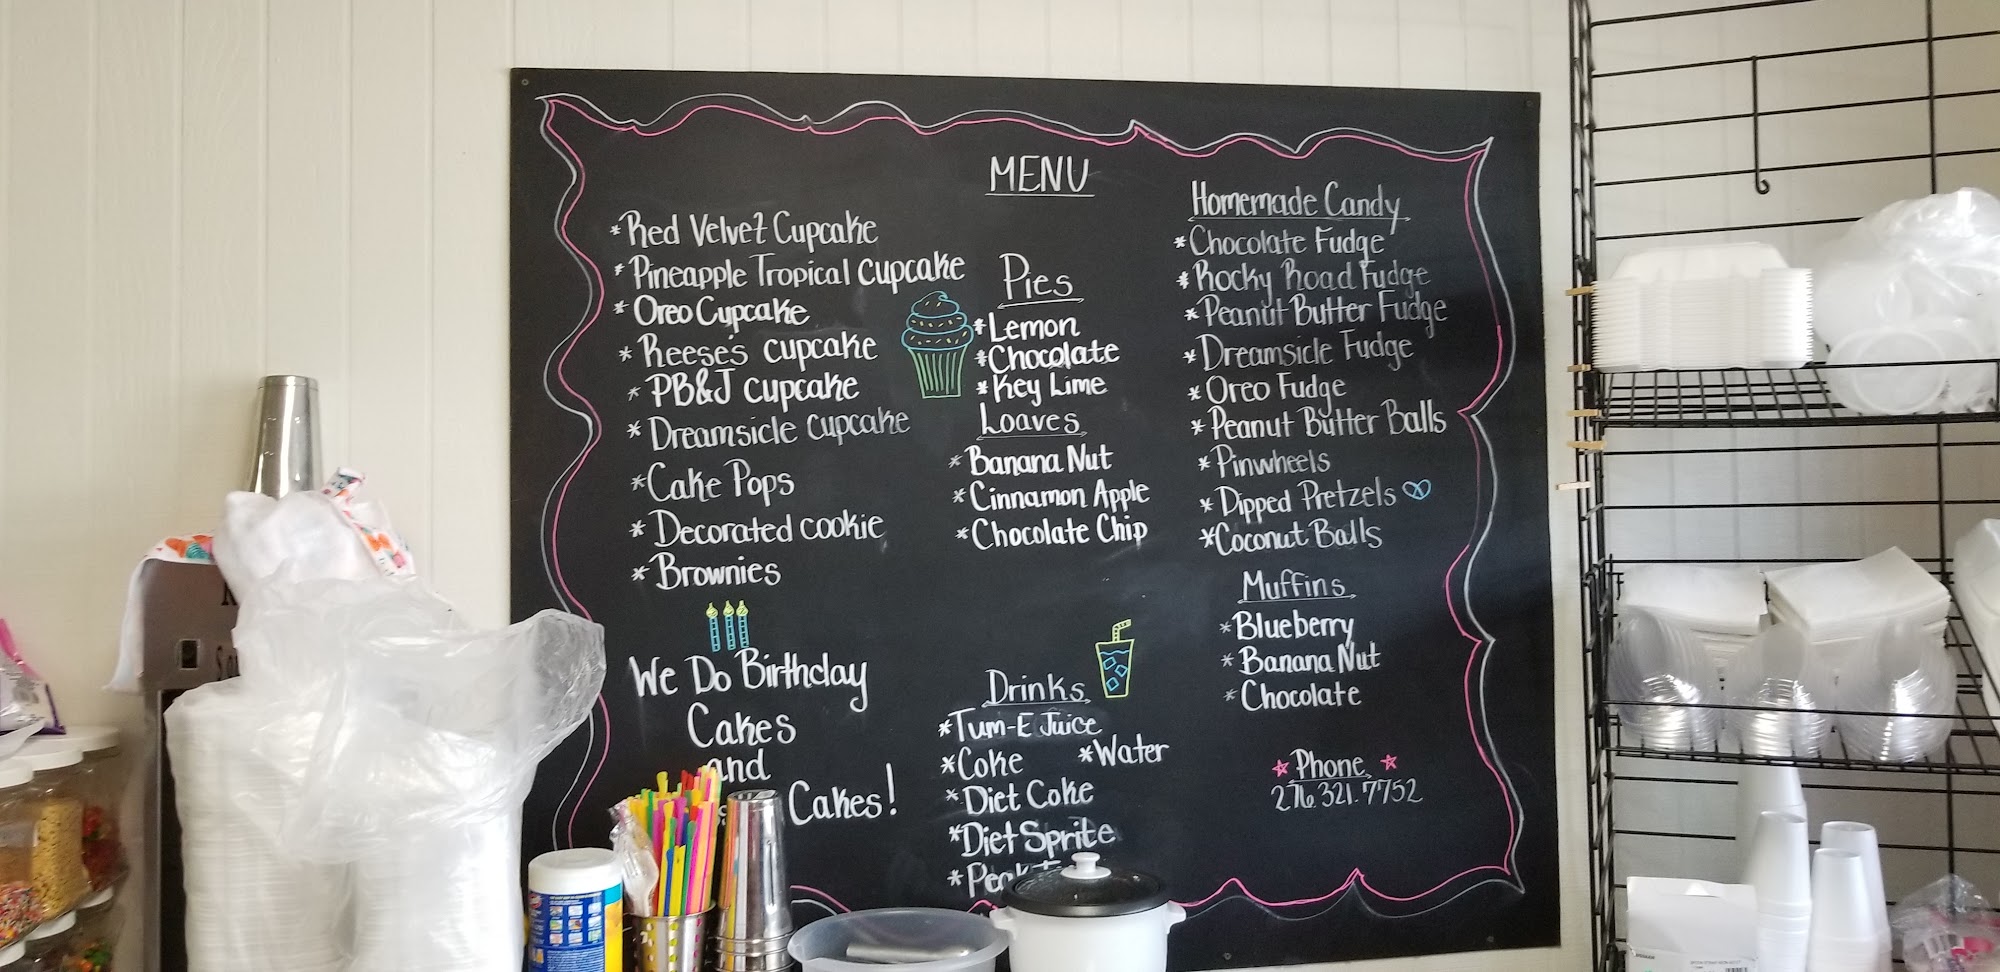 MENU
*Red Velvet Cupcake
*Pineapple Tropical Cupcake
*Oreo Cupcake
*Reese's Cupcake
*PB&J Cupcake
*Dreamsicle Cupcake
*Cake Pops
*Decorated Cookie
*Brownies
We Do Birthday
Cakes
and
Cakes!
Pies
*Lemon
*Chocolate
*Key Lime
Loaves
*Banana Nut
*Cinnamon Apple
*Chocolate Chip
Drinks
*Tum-E Juice
*Coke *Water
*Diet Coke
*Diet Sprite
Homemade Candy
*Chocolate Fudge
*Rocky Road Fudge
*Peanut Butter Fudge
*Dreamsicle Fudge
*Oreo Fudge
*Peanut Butter Balls
*Pinwheels
*Dipped Pretzels
*Coconut Balls
Muffins
*Blueberry
*Banana Nut
*Chocolate
Phone
276.321.7752